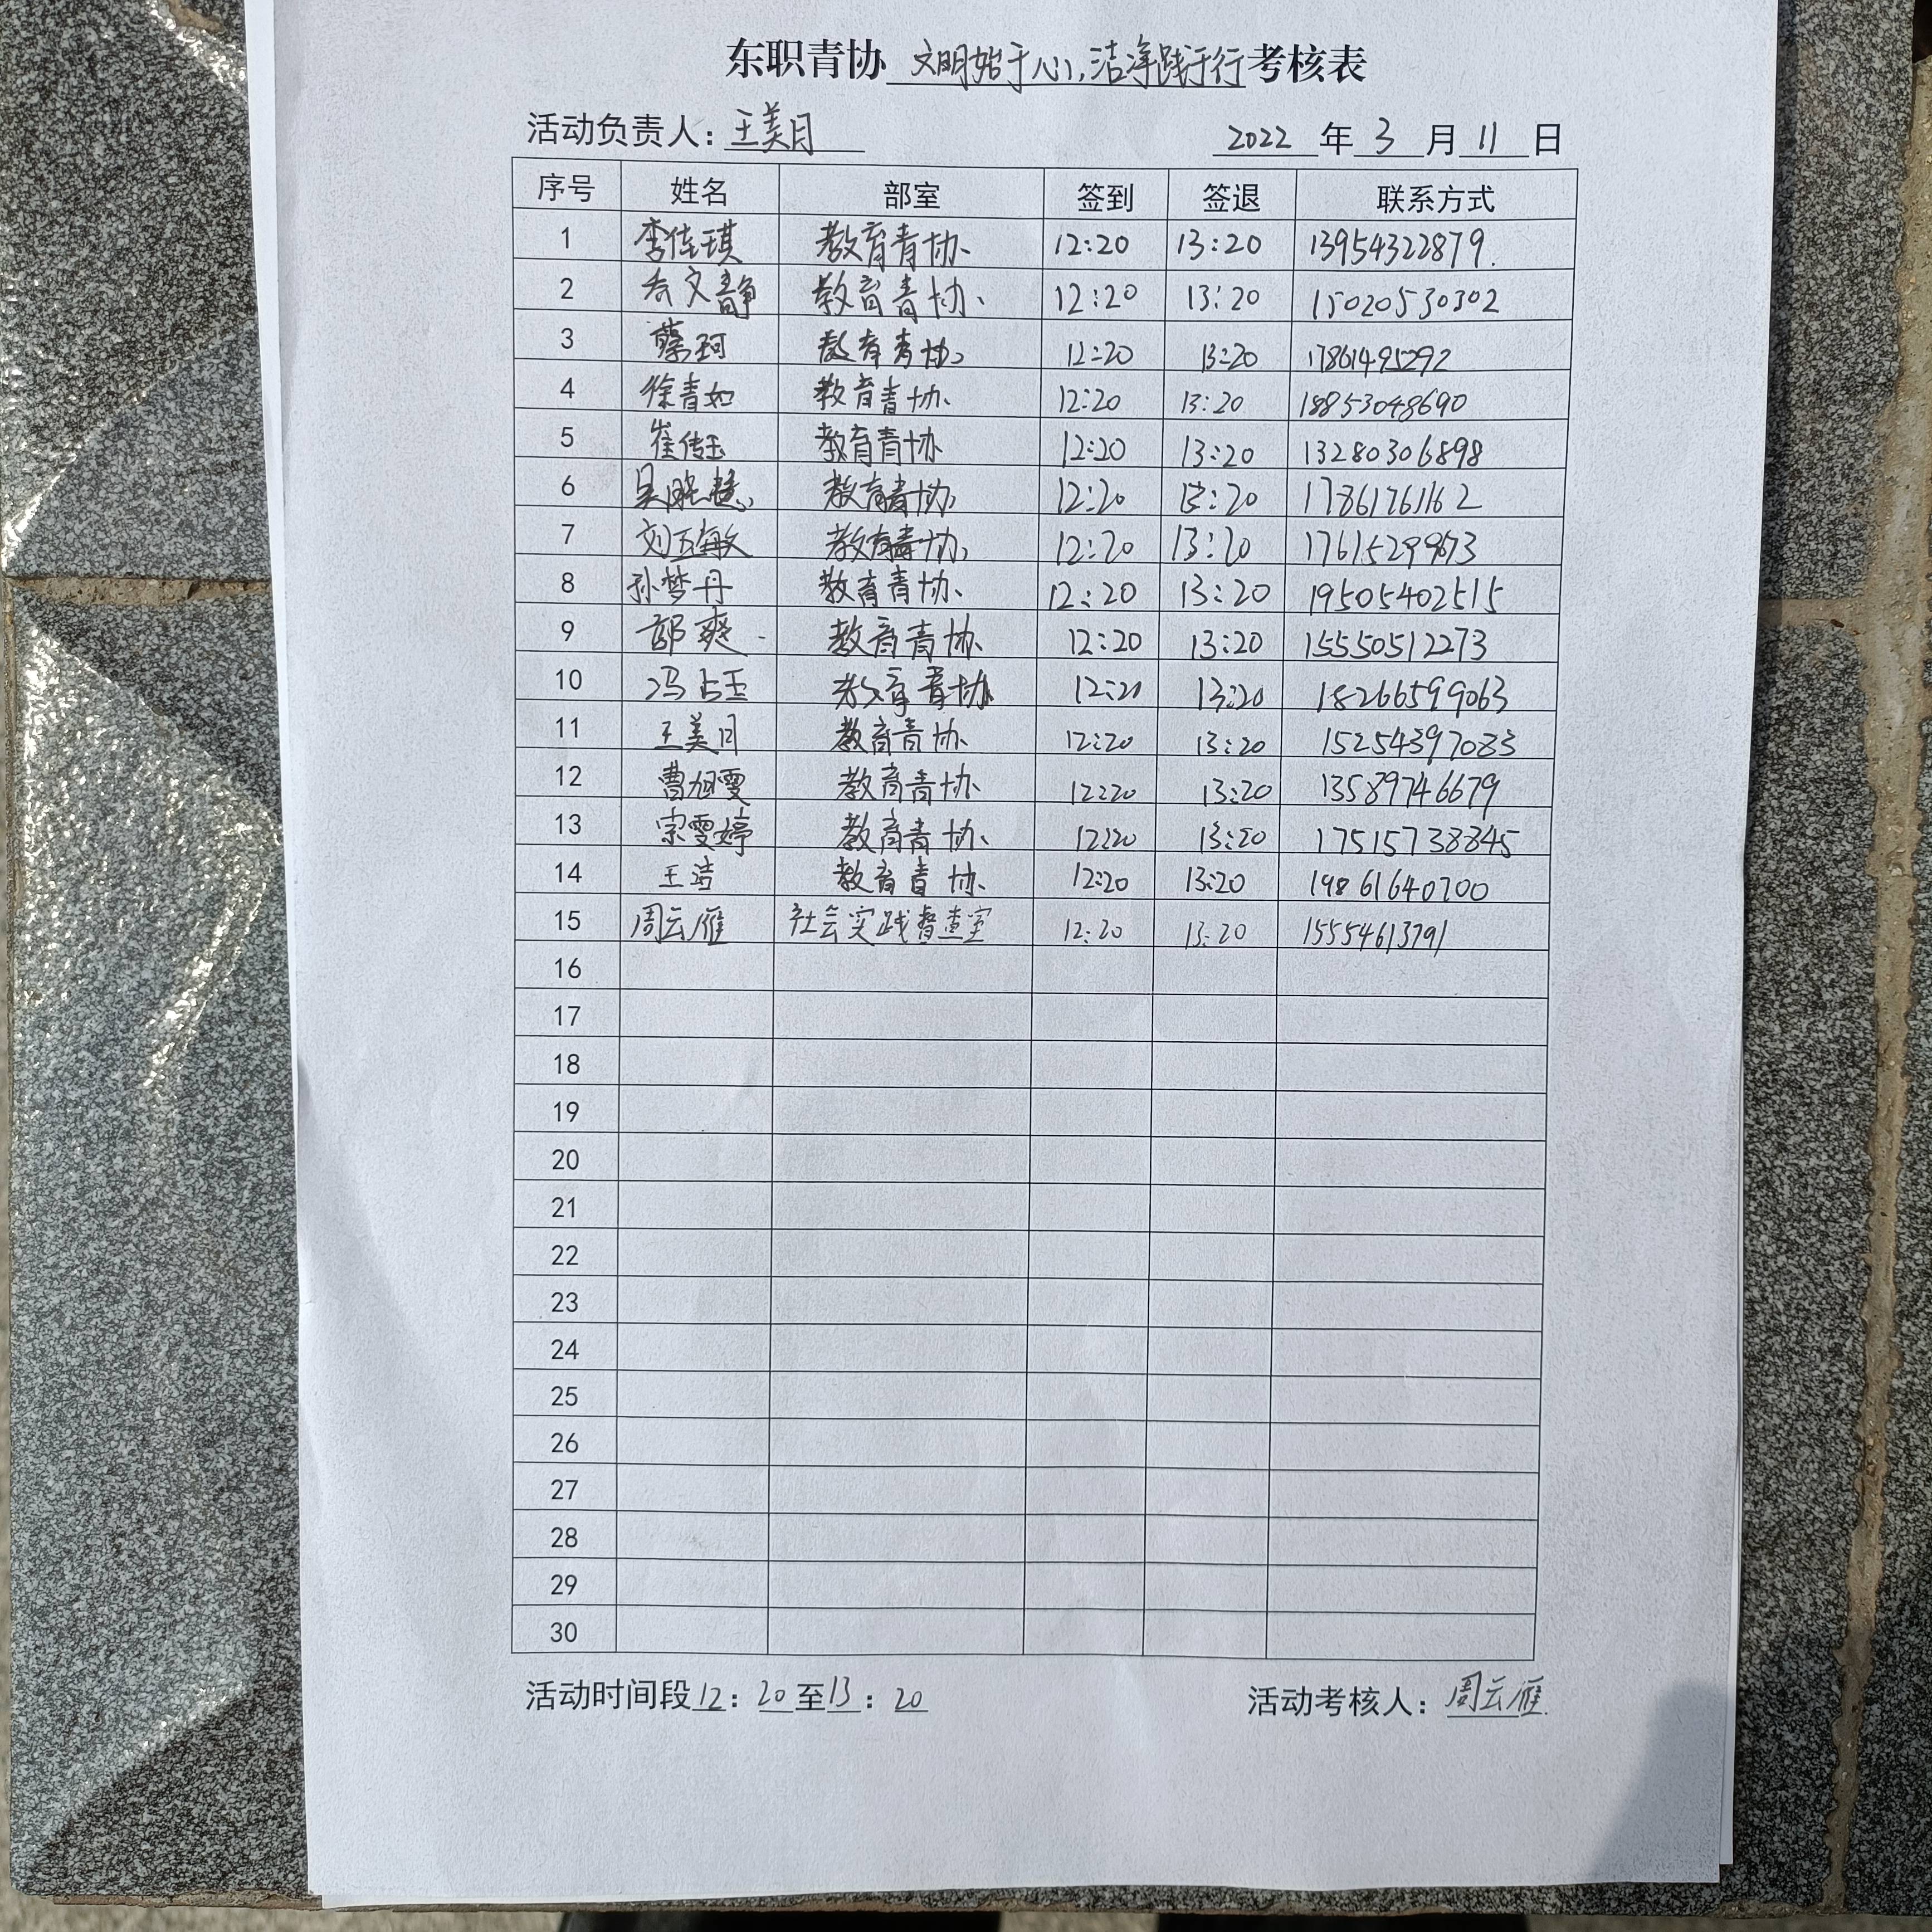 东职青协 文明始于心,洁净践于行 考核表
活动负责人：王美月 2022 年 3 月 11 日
序号 姓名 部室 签到 签退 联系方式
1 李佳琪 教育青协 12:20 13:20 13954322879.
2 乔文静 教育青协 12:20 13:20 15020530302
3 蔡珂 教育青协 12:20 13:20 17861495292
4 徐青如 教育青协 12:20 13:20 18853048690
5 崔传玉 教育青协 12:20 13:20 13280306898
6 吴晓慧 教育青协 12:20 13:20 17861761162
7 刘玉敏 教育青协 12:20 13:20
8 孙梦丹 教育青协 12:20 13:20 19505402515
9 郭爽 教育青协 12:20 13:20 15550512273
10 冯占玉 教育青协 12:20 13:20 18266599063
11 王美月 教育青协 12:20 13:20 15254397083
12 曹旭雯 教育青协 12:20 13:20 13589746679
13 宗雯婷 教育青协 12:20 13:20 17515738845
14 王洁 教育青协 12:20 13:20 19861640700
15 周云雁 社会实践督查室 12:20 13:20 15554613791
16
17
18
19
20
21
22
23
24
25
26
27
28
29
30
活动时间段 12：20 至 13：20 活动考核人：周云雁.